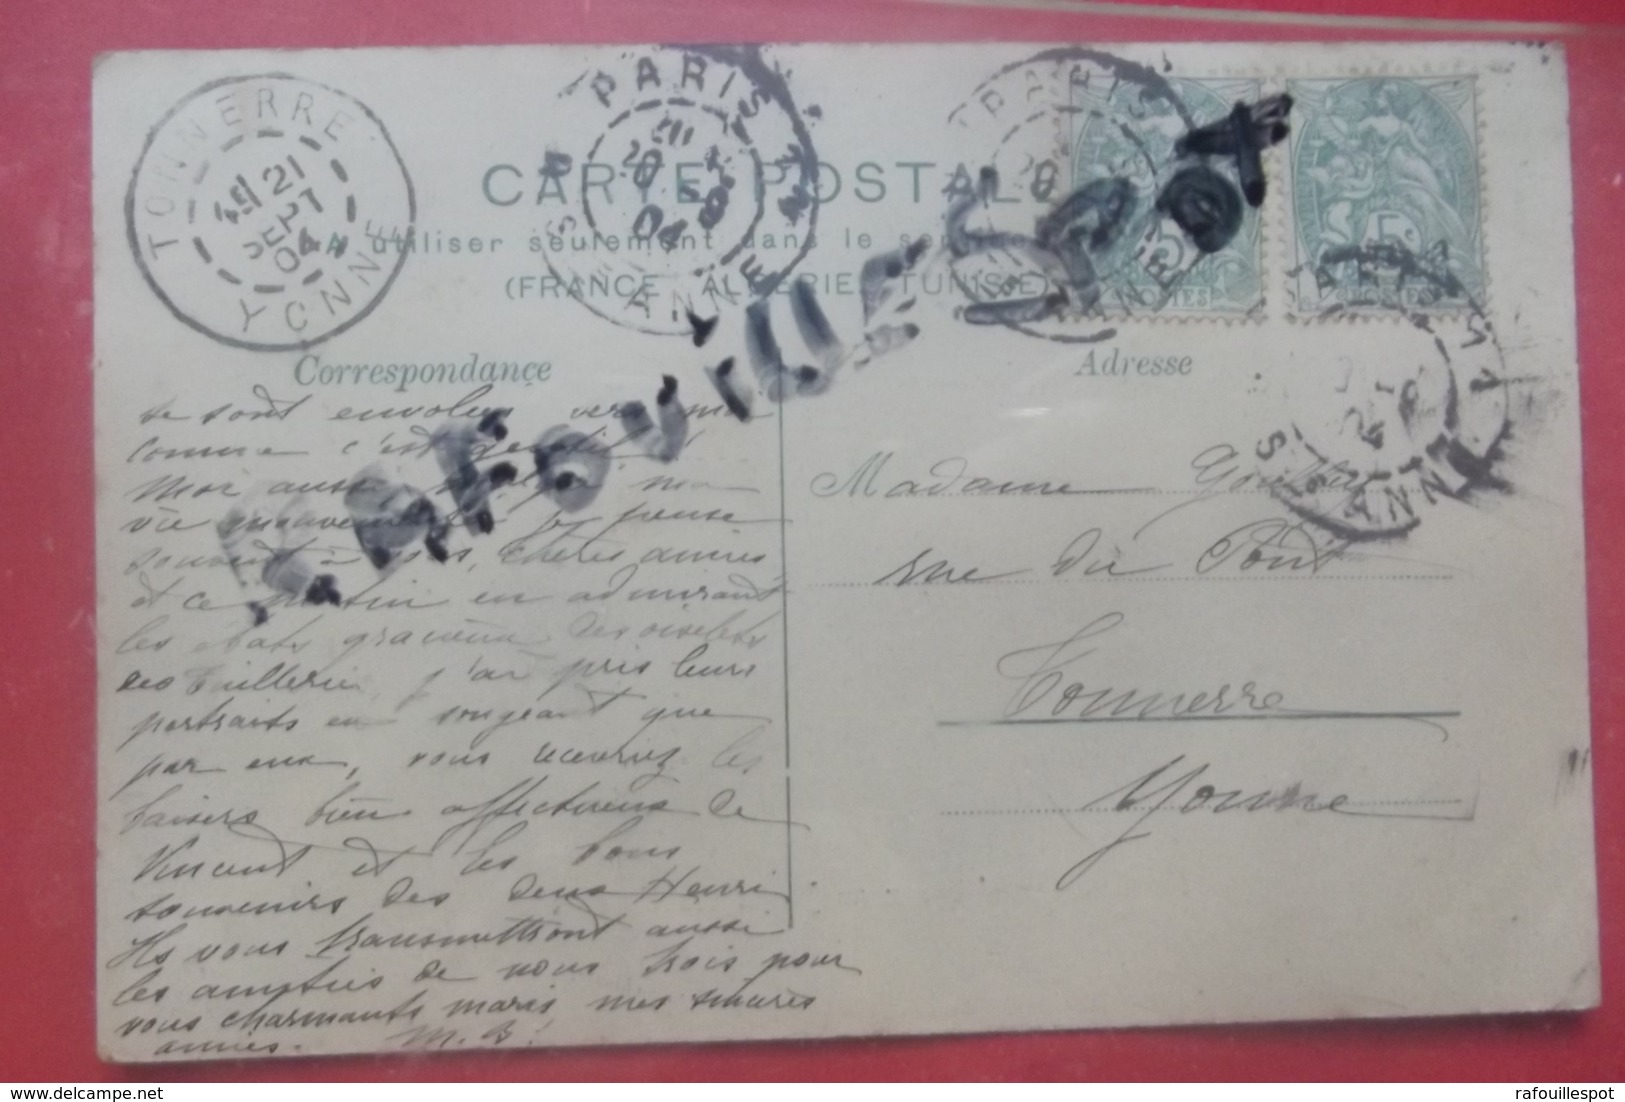 TONNERRE
21
SEPT
04
YONNE
PARIS
20
04
ANNEXE
CARTE POSTALE
A utiliser seulement dans le
(FRANCE ALGERIE TUNISIE)
5
5
POSTES
Correspondance
Adresse
se sont envolées vers moi
comme c'est gentil!
moi aussi malgré ma
vie mouvementée je pense
souvent à vous, chères amies
et ce matin en admirant
les ébats gracieux des oiselets
des Tuileries, j'ai pris leurs
portraits en songeant que
par eux, vous recevriez les
baisers bien affectueux de
Vincent et les bons
souvenirs des deux Henri
Ils vous transmettront aussi
les amitiés de nous trois pour
vous charmants maris mes sincères
amies. M. B.
Madame
rue du Pont
Tonnerre
Yonne
rafouillespot
delcampe.net